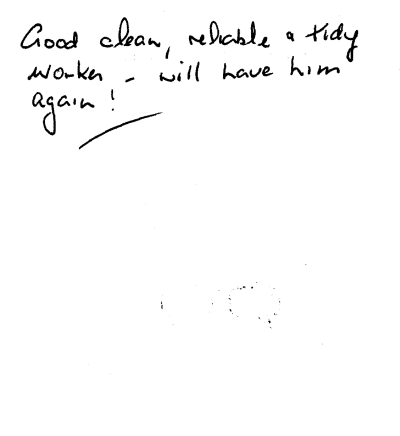 Good clean, reliable & tidy
worker - will have him
again!